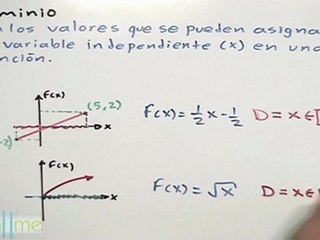 minio
los valores que se pueden asigna
variable independiente (x) en una
nción.
F(x)
(5,2)
F(x)=½x-½ D=x∈[
x
-2)
F(x)
F(x)=√x D=x∈
x
me